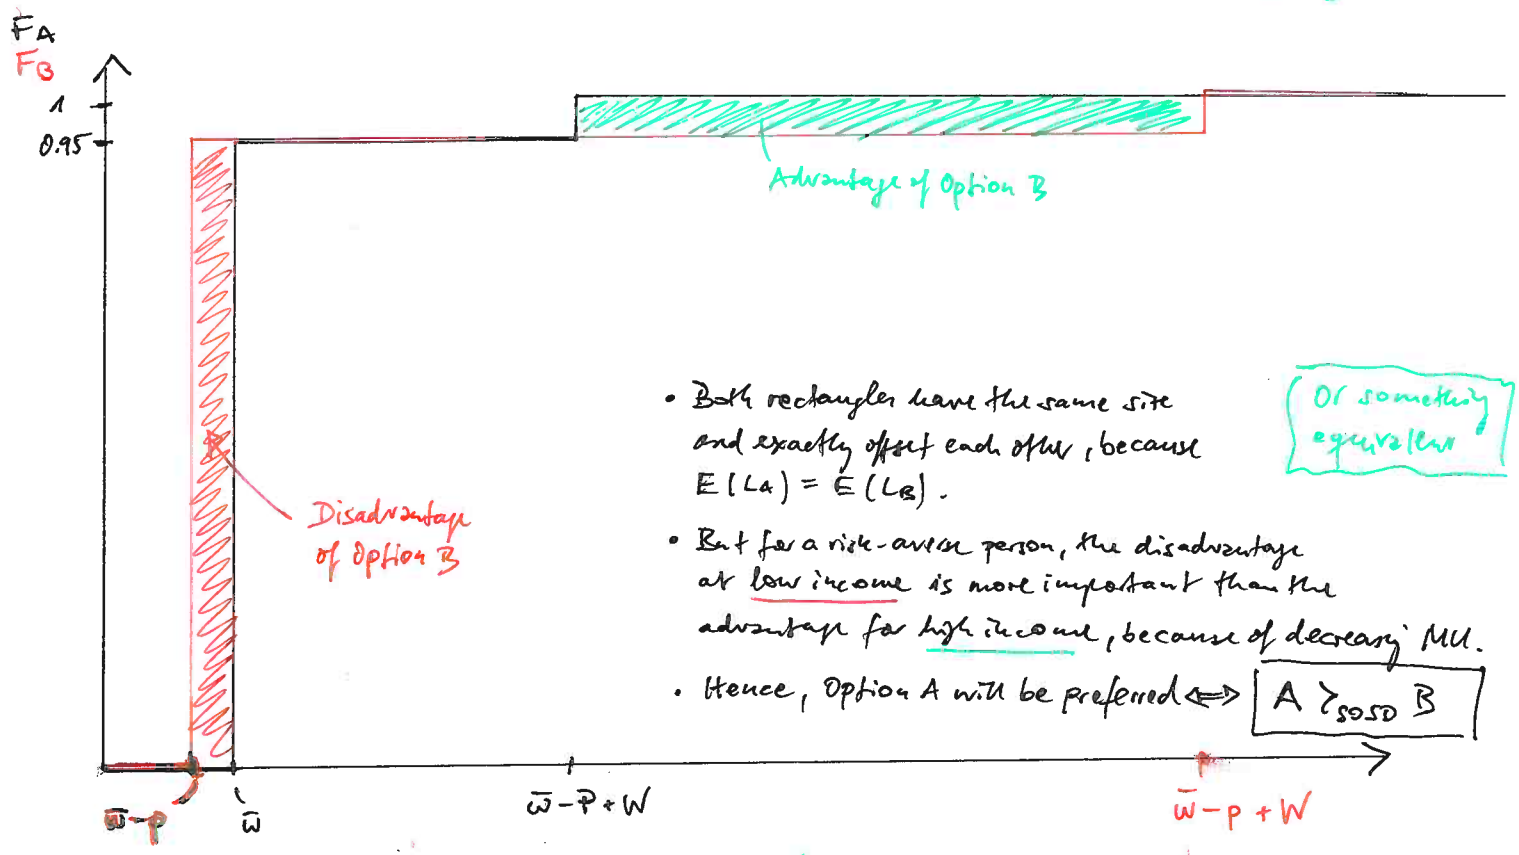 FA
FB
1
0.95
Advantage of Option B
• Both rectangles have the same size
and exactly offset each other, because
E(LA) = E(LB).
Or something
equivalent
Disadvantage
of Option B
• But for a risk-averse person, the disadvantage
at low income is more important than the
advantage for high income, because of decreasing MU.
• Hence, Option A will be preferred ⇔ A ≻SOSD B
w̄-p
w̄
w̄-P+W
w̄-p+W